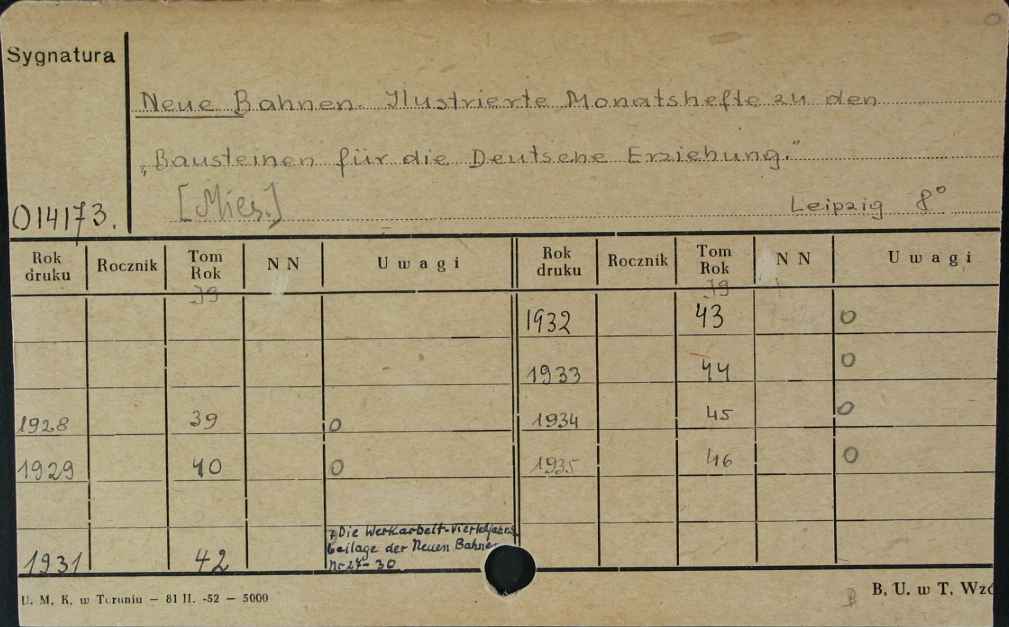 Sygnatura
Neue Bahnen. Ilustrierte Monatshefte zu den
„Bausteinen für die Deutsche Erziehung."
014173.
[Mies.]
Leipzig 8°
Rok druku Rocznik Tom Rok N N Uwagi Rok druku Rocznik Tom Rok N N Uwagi
39 39
1932 43 0
1933 44 0
1928 39 0 1934 45 0
1929 40 0 1935 46 0
1931 42
z Die Werkarbeit-Vierteljahrs
beilage der Neuen Bahnen
Nr 27-30
U. M. K. w Toruniu — 81 II. -52 — 5000
B. U. w T. Wzó